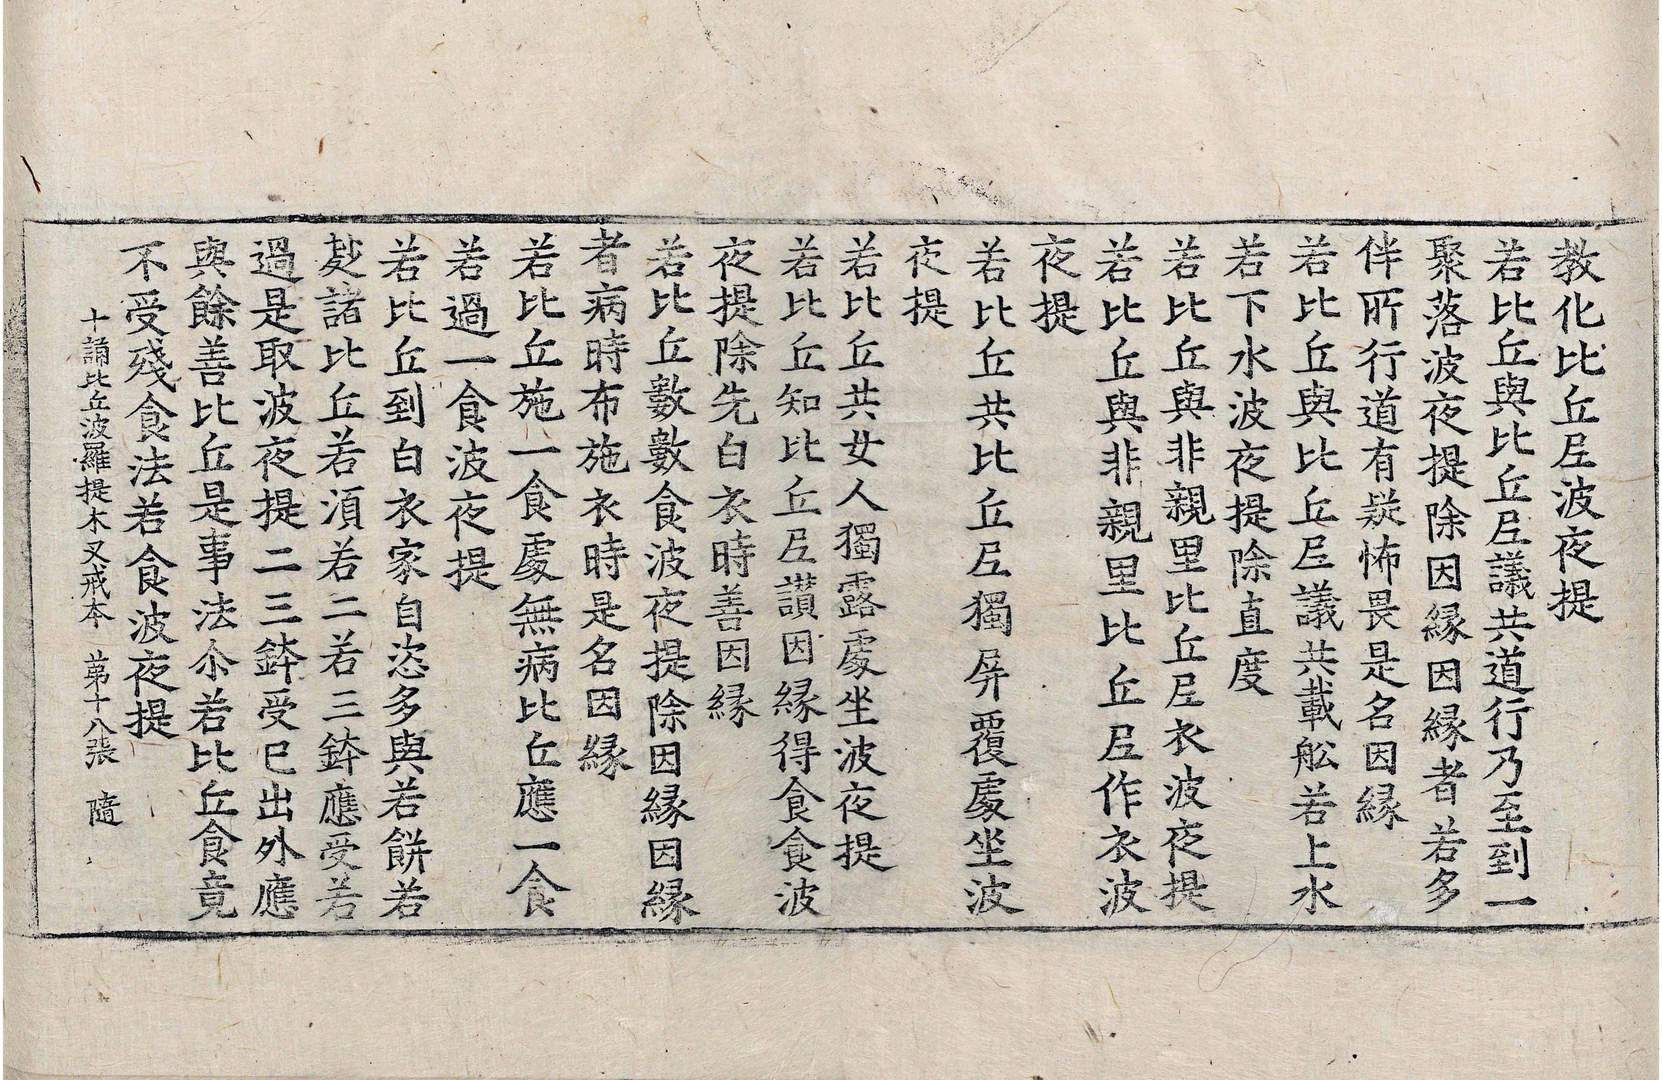 教化比丘𡰱波夜提
若比丘與比丘𡰱議共道行乃至到一
聚落波夜提除因縁因縁者若多
伴所行道有疑怖畏是名因縁
若比丘與比丘𡰱議共載舩若上水
若下水波夜提除直度
若比丘與非親里比丘𡰱衣波夜提
若比丘與非親里比丘𡰱作衣波
夜提
若比丘共比丘𡰱獨屏覆䖏坐波
夜提
若比丘共女人獨露䖏坐波夜提
若比丘知比丘𡰱讃因縁得食食波
夜提除先白衣時善因縁
若比丘數數食波夜提除因縁因縁
者病時布施衣時是名因縁
若比丘施一食䖏無病比丘應一食
若過一食波夜提
若比丘到白衣家自恣多與若餅若
麨諸比丘若湏若二若三鉢應受若
過是取波夜提二三鉢受已出外應
與餘善比丘是事法尒若比丘食竟
不受殘食法若食波夜提
十誦比丘波羅提木叉戒本 苐十八張 隨